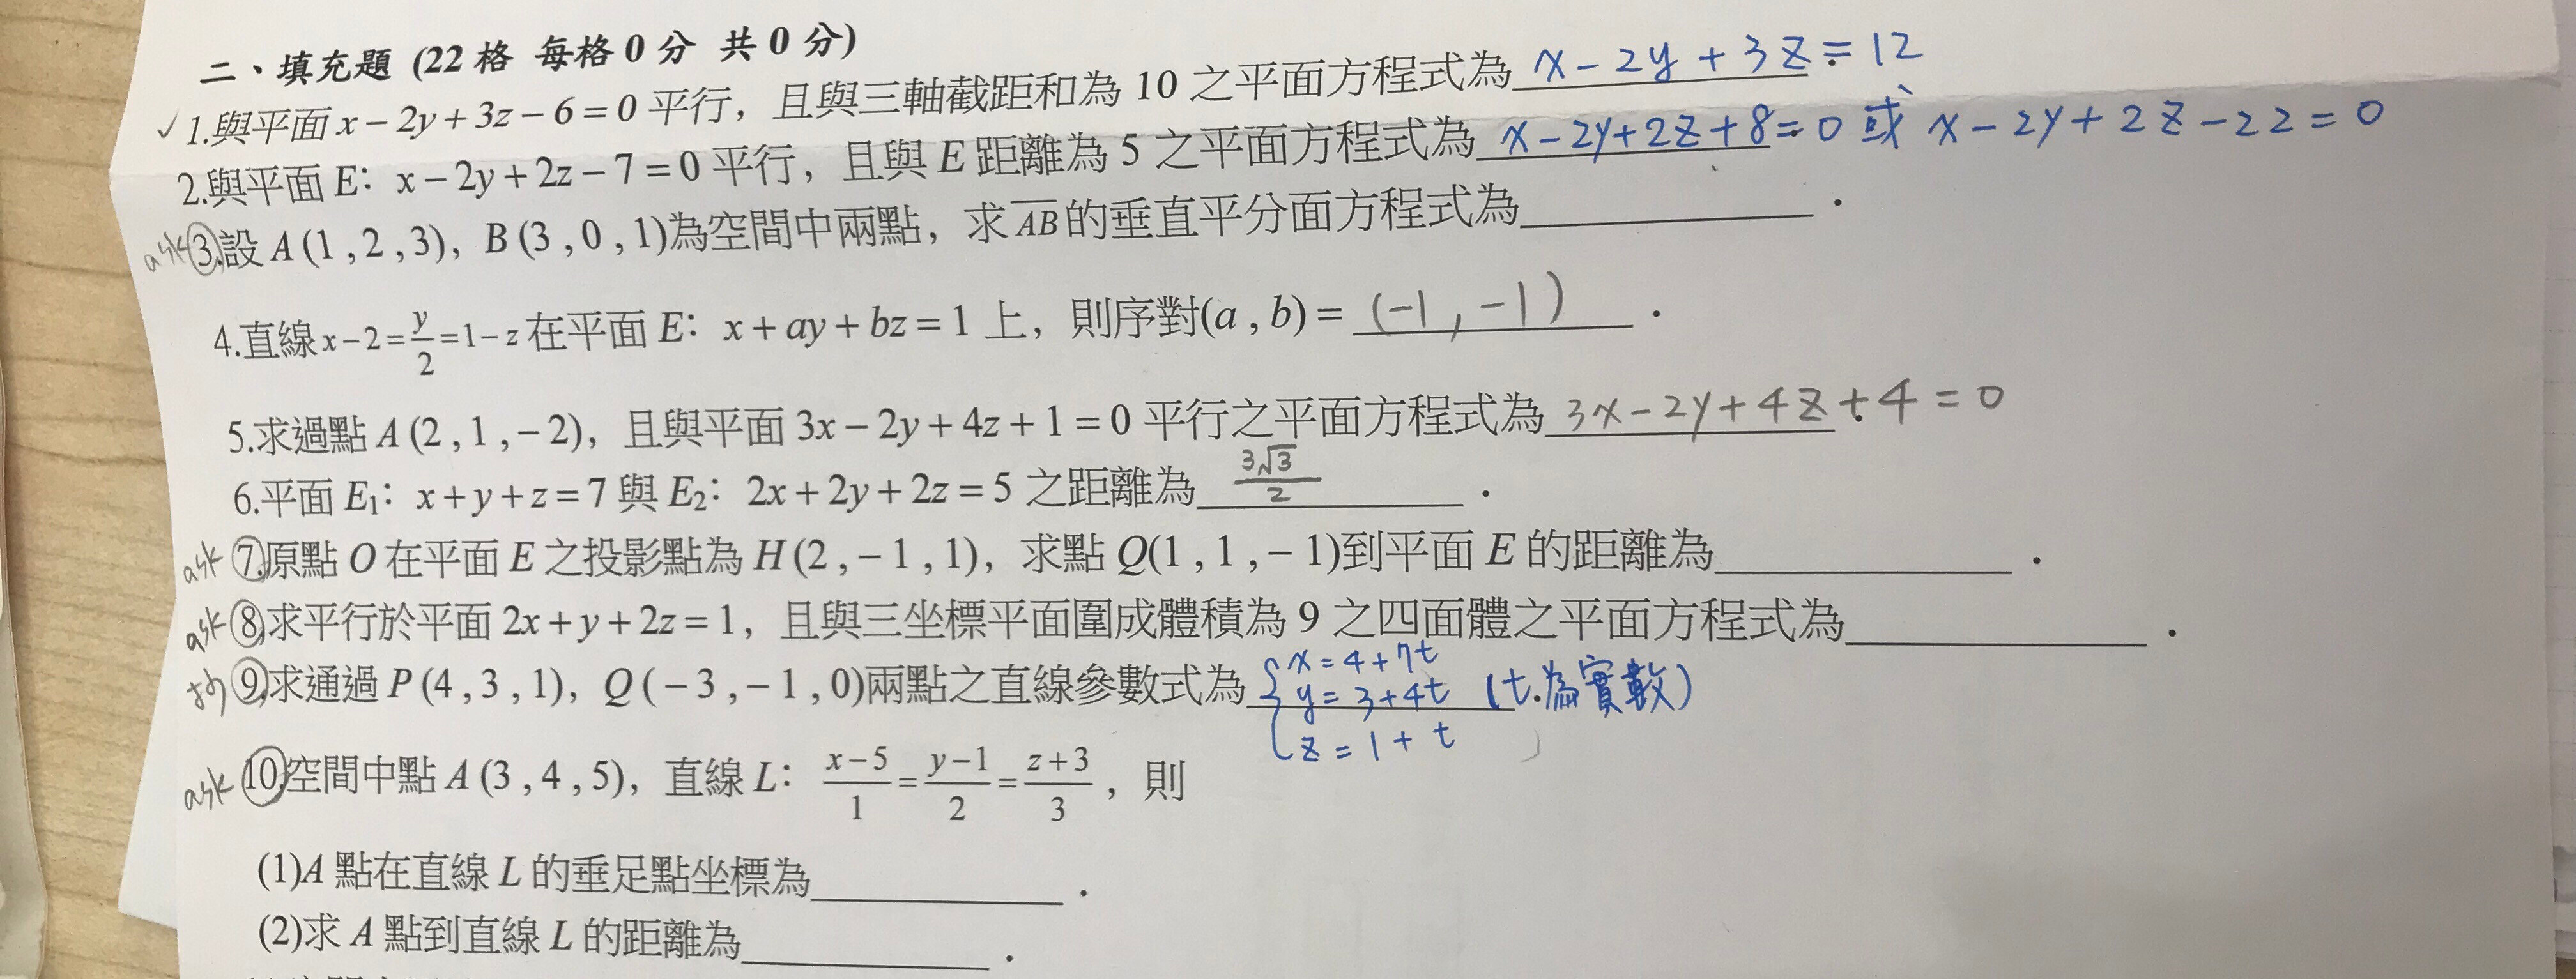 二、填充題 (22 格 每格 0 分 共 0 分)
✓ 1.與平面 x－2y＋3z－6＝0 平行，且與三軸截距和為 10 之平面方程式為 x－2y＋3z＝12 .
2.與平面 E：x－2y＋2z－7＝0 平行，且與 E 距離為 5 之平面方程式為 x－2y＋2z＋8＝0 或 x－2y＋2z－22＝0
ask ③.設 A (1 , 2 , 3)，B (3 , 0 , 1)為空間中兩點，求 A̅B̅ 的垂直平分面方程式為 .
4.直線 x－2＝y/2＝1－z 在平面 E：x＋ay＋bz＝1 上，則序對(a , b)＝ (－1 , －1) .
5.求過點 A (2 , 1 , －2)，且與平面 3x－2y＋4z＋1＝0 平行之平面方程式為 3x－2y＋4z＋4＝0 .
6.平面 E₁：x＋y＋z＝7 與 E₂：2x＋2y＋2z＝5 之距離為 3√3/2 .
ask ⑦.原點 O 在平面 E 之投影點為 H (2 , －1 , 1)，求點 Q(1 , 1 , －1)到平面 E 的距離為 .
ask ⑧.求平行於平面 2x＋y＋2z＝1，且與三坐標平面圍成體積為 9 之四面體之平面方程式為 .
⑨.求通過 P (4 , 3 , 1)，Q (－3 , －1 , 0)兩點之直線參數式為 { x＝4＋7t
y＝3＋4t (t 為實數) .
z＝1＋t
ask ⑩.空間中點 A (3 , 4 , 5)，直線 L：(x－5)/1＝(y－1)/2＝(z＋3)/3，則
(1)A 點在直線 L 的垂足點坐標為 .
(2)求 A 點到直線 L 的距離為 .